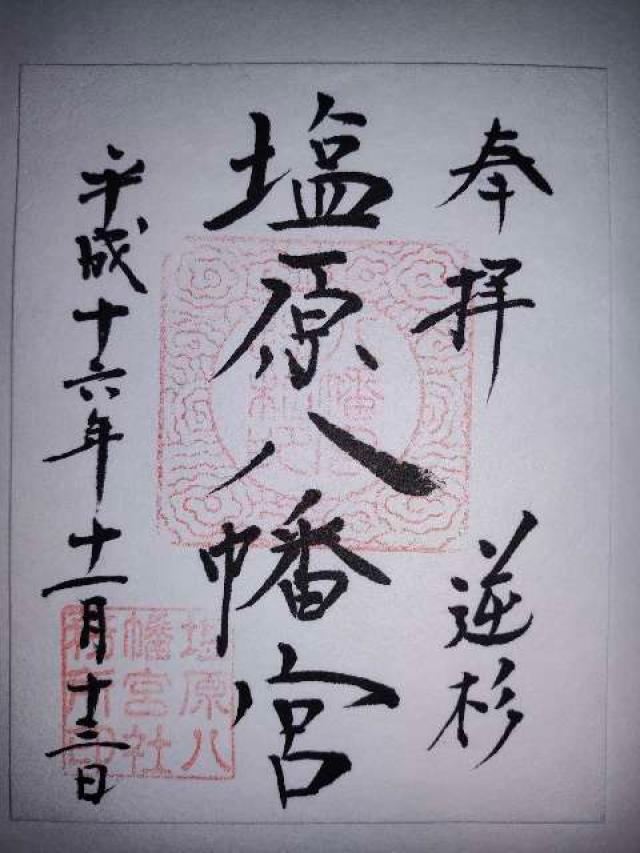 奉拝 逆杉
塩原八幡宮
平成十六年十一月十三日
塩原八
幡宮社
務所印